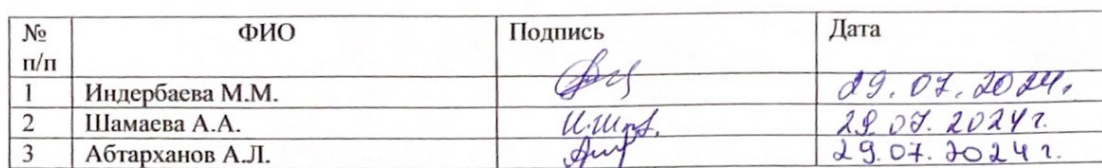 № п/п ФИО Подпись Дата
1 Индербаева М.М. 29.07.2024.
2 Шамаева А.А. 29.07.2024г.
3 Абтарханов А.Л. 29.07.2024г.